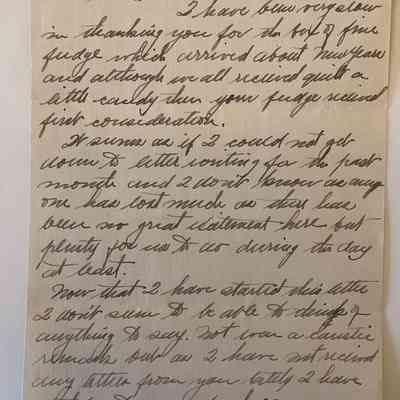 I have been very slow
in thanking you for the box of fine
fudge which arrived about New Years
and although we all received quite a
little candy then your fudge received
first consideration.
It seems as if I could not get
down to letter writing for the past
month and I don't know as any
one has lost much as there has
been no great excitement here but
plenty for us to do during the day
at least.
Now that I have started this letter
I don't seem to be able to think of
anything to say. Not even a caustic
remark but as I have not received
any letter from you lately I have